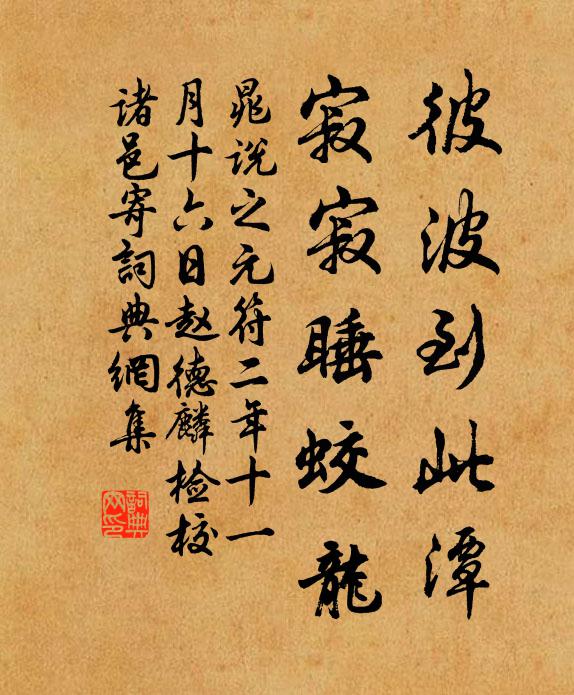 彼波到此潭
寂寂睡蛟龍
晁说之元符二年十一
月十六日赵德麟检校
诸邑寄詞典網集
詞典
网印